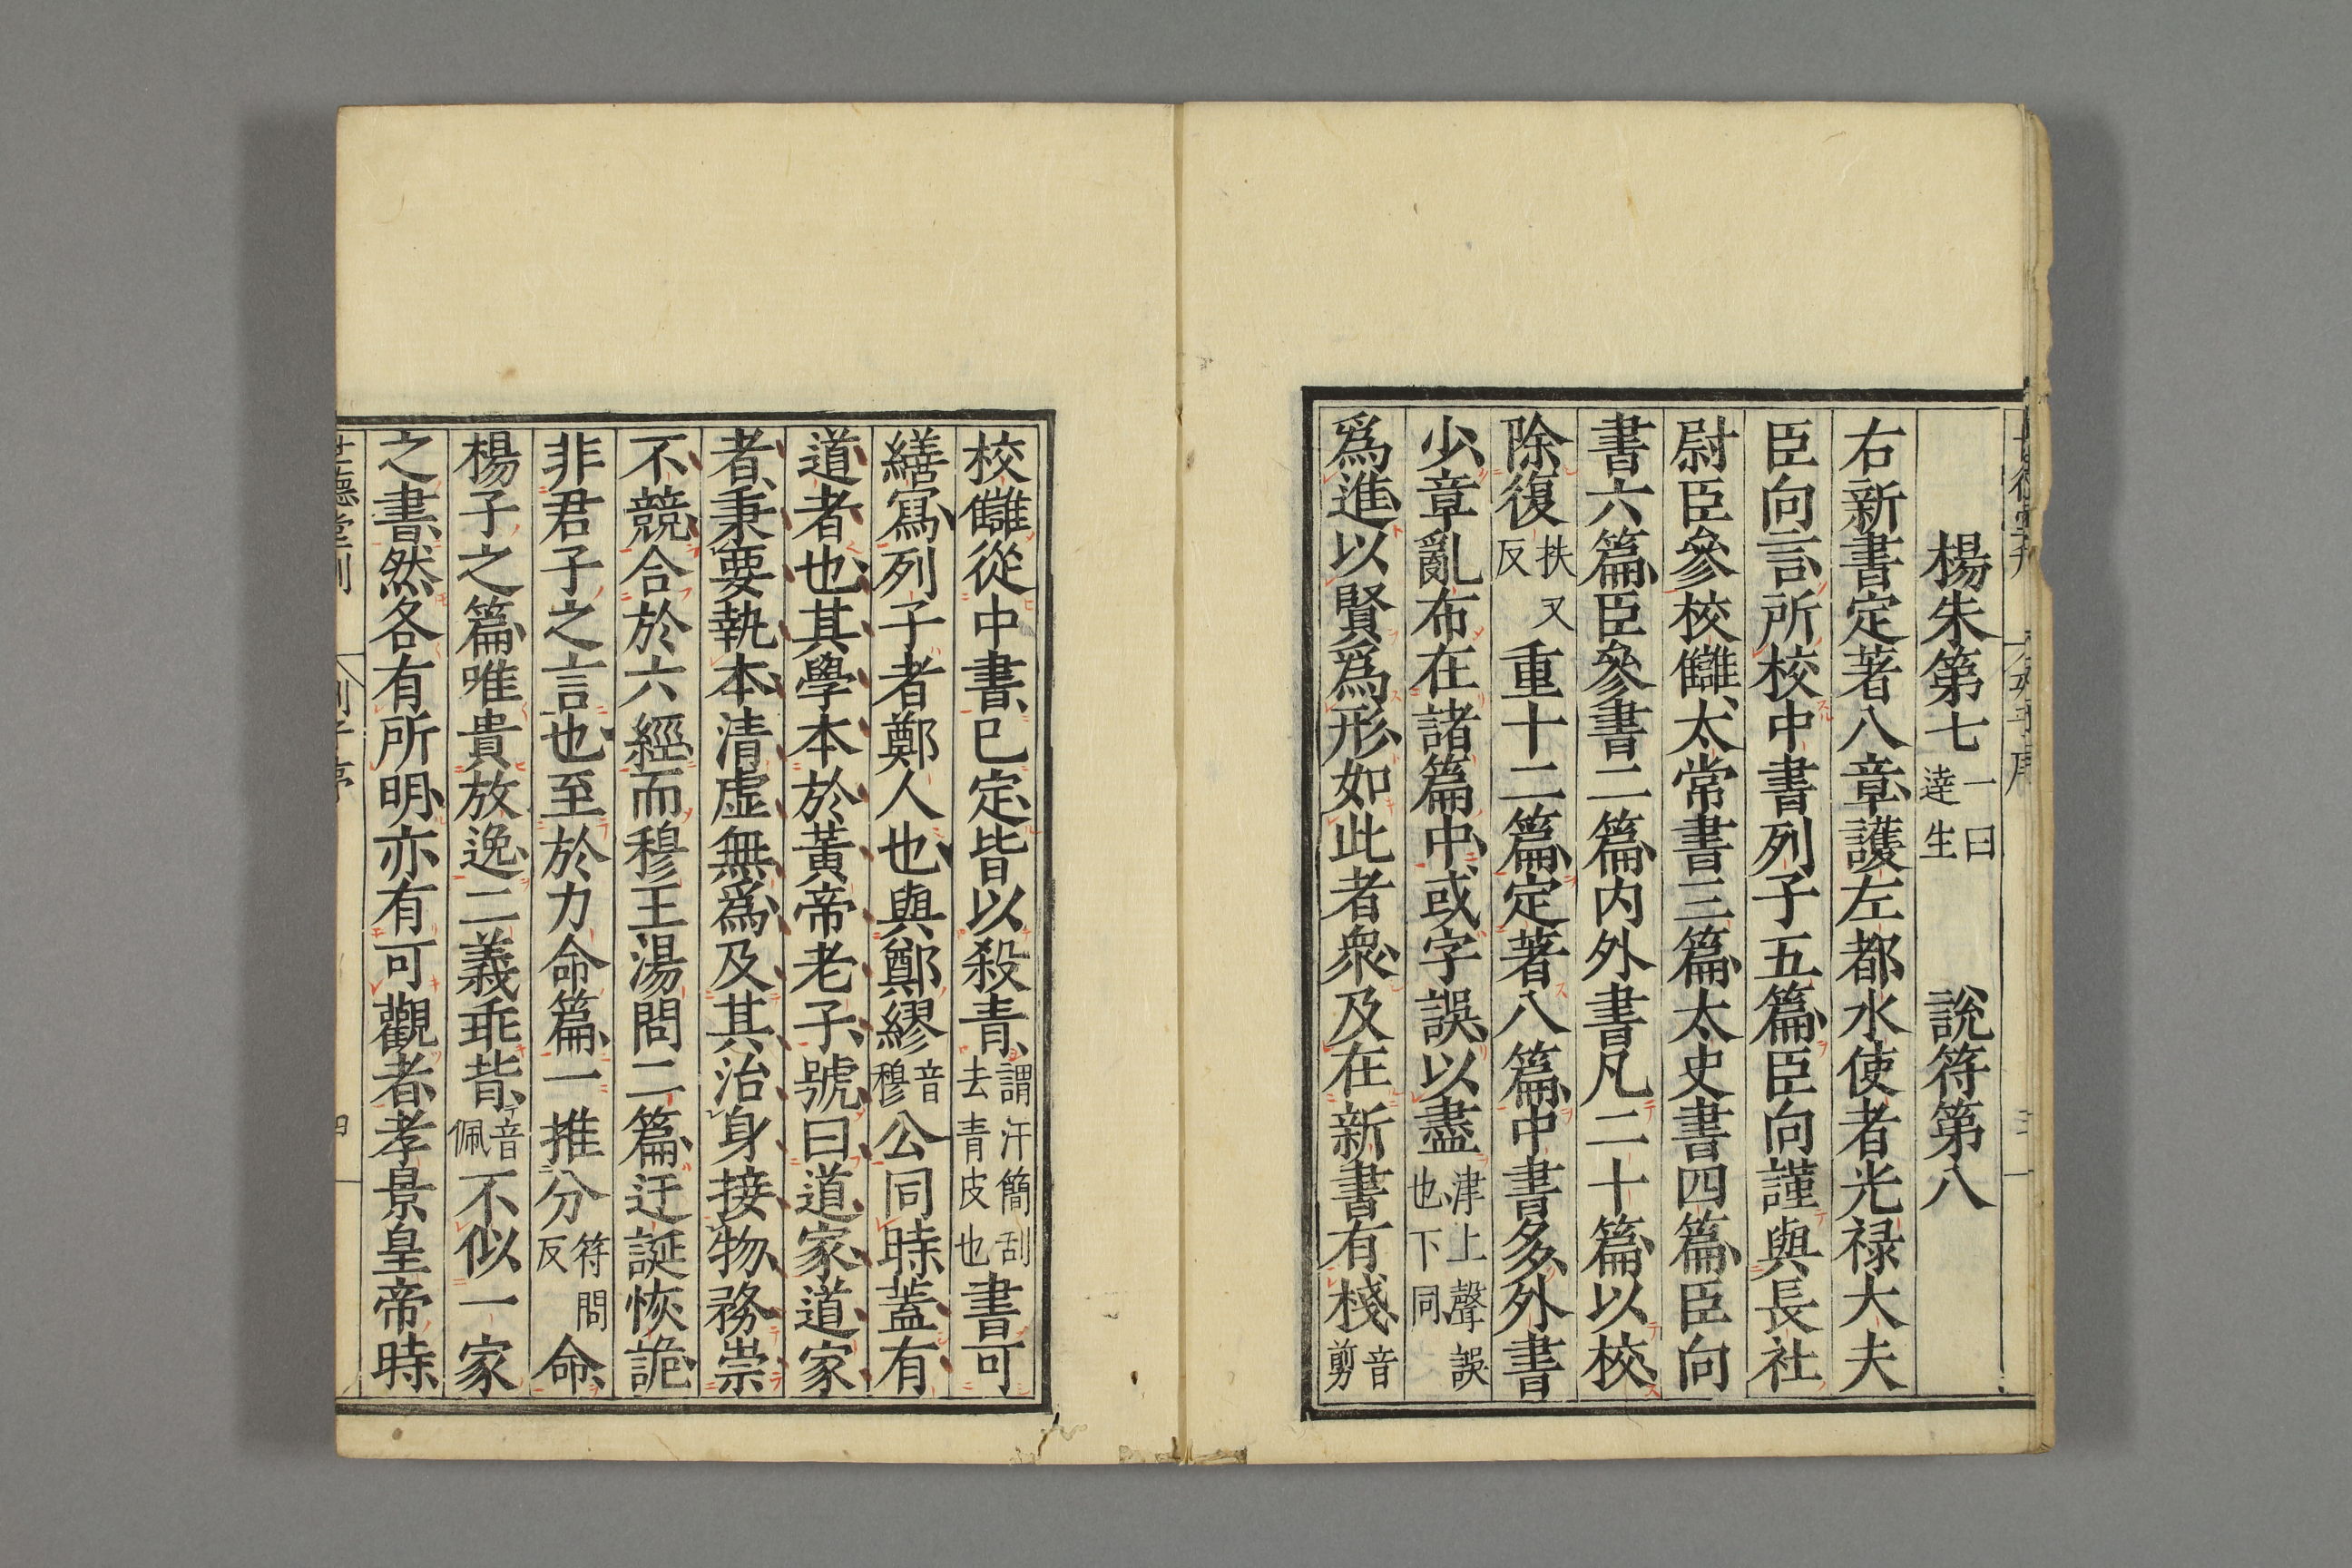 楊朱第七一曰逹生 說符第八
右新書定著八章護左都水使者光禄大夫
臣向言所校中書列子五篇臣向謹與長社
尉臣參校讎太常書三篇太史書四篇臣向
書六篇臣參書二篇内外書凡二十篇以校
除復扶又反重十二篇定著八篇中書多外書
少章亂布在諸篇中或字誤以盡津上聲誤也下同
爲進以賢爲形如此者衆及在新書有棧音剪
校讎從中書已定皆以殺青謂汗簡刮去青皮也書可
繕寫列子者鄭人也與鄭繆音穆公同時蓋有
道者也其學本於黃帝老子號曰道家道家
者秉要執本清虛無爲及其治身接物務崇
不競合於六經而穆王湯問二篇迂誕恢詭
非君子之言也至於力命篇一推分符問反命
楊子之篇唯貴放逸二義乖背音佩不似一家
之書然各有所明亦有可觀者孝景皇帝時